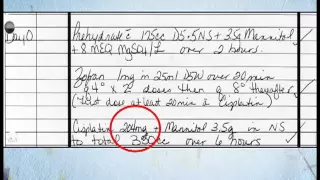 Day 0
Prehydrate c̄ 175cc D5.5NS + 3.5g Mannitol
+ 8 MEQ MgSO4/L over 2 hours.
Zofran 1mg in 25ml D5W over 20min
q 4° x 2 doses then q 8° thereafter
(1st dose at least 20min a Cisplatin)
Cisplatin 204mg + Mannitol 3.5g in NS
to total 350cc over 6 hours